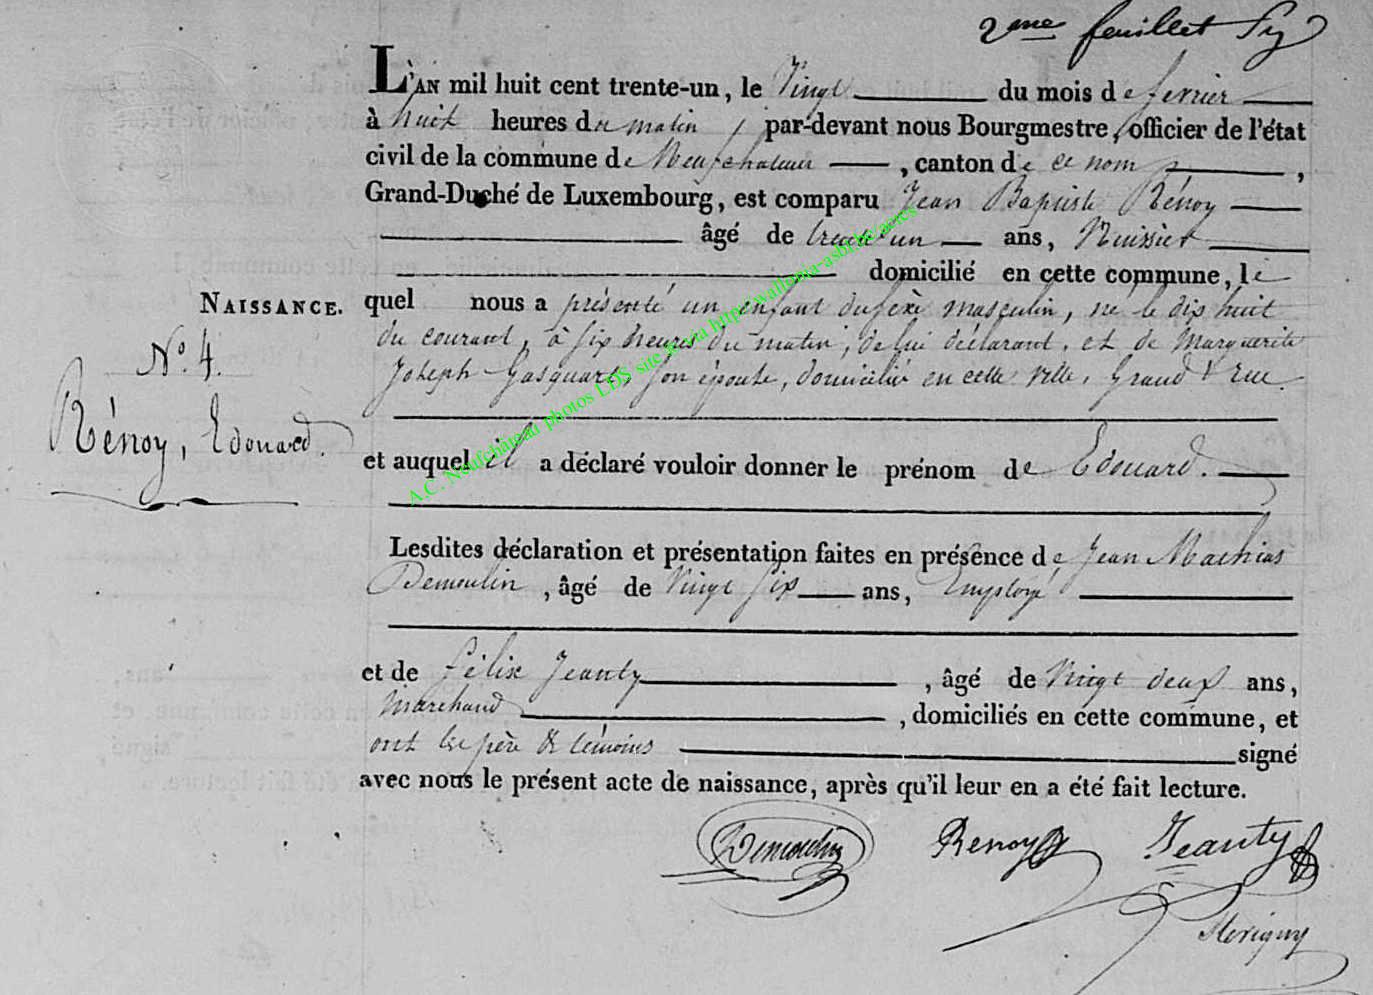 2me feuillet
L'AN mil huit cent trente-un, le Vingt du mois de fevrier
à huit heures du matin, par-devant nous Bourgmestre, officier de l'état
civil de la commune de Neufchateau, canton de ce nom,
Grand-Duché de Luxembourg, est comparu Jean Baptiste Rénoy
âgé de trente un ans, Huissier
domicilié en cette commune, le
NAISSANCE.
quel nous a présenté un enfant du sexe masculin, né le dix huit
N°. 4.
du courant, à six heures du matin, de lui déclarant, et de Marguerite
Joseph Gasquart, son épouse, domiciliés en cette ville, Grand'rue.
Rénoy, Edouard.
et auquel il a déclaré vouloir donner le prénom de Edouard.
Lesdites déclaration et présentation faites en présence de Jean Mathias
Demoulin, âgé de Vingt six ans, Employé
et de Félix Jeanty, âgé de Vingt deux ans,
Marchand, domiciliés en cette commune, et
ont les père & témoins signé
avec nous le présent acte de naissance, après qu'il leur en a été fait lecture.
Demoulin Renoy Jeanty
A.C. Neufchâteau photos LDS site via http:/wallonia-asbl.be/actes